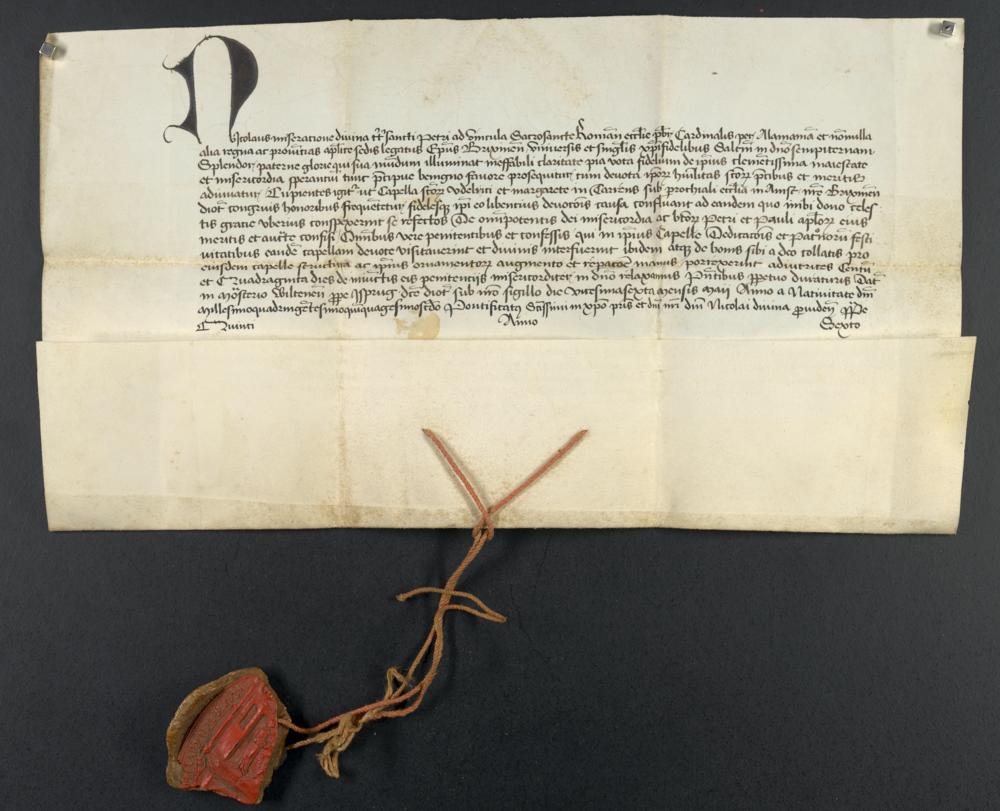 Nicolaus miseratione divina tt̄ sancti Petri ad vincula Sacrosancte Romane eccl̄ie pb̄r Cardinalis, per Alamaniā et nōnulla
alia regna ac provīcias aplīce sedis legatus Ep̄us Brixineñ Universis et singlis xp̄ifidelibus Salt̄m in dn̄o sempiternam
Splendor paterne glorie qui sua mūdum illuminat ineffabili claritate pia vota fideliū de ipius clemētissima maiestate
et misericordia sperantiū tunc p̄cipue benigno favore prosequitur, cum devota ipoꝝ hūilitas sc̄toꝝ p̄cibus et meritis
adiuvatur, Cupientes igit̄ ut Capella sc̄toꝝ Udalrici et margarete in sub prothiali eccl̄ia in nr̄e Brixineñ
dioc̄ congruis honoribus frequētetur, fidelesqꝫ ip̄i eo libentius devotōis causa confluant ad eandem quo inibi dono celes
tis gratie uberius conspexerint se refectos De om̄ipotentis dei misericordia ac btōꝝ Petri et Pauli aplōꝝ eius
meritis et auc̄te confisi Om̄ibus vere penitentibus et confessis qui in ipius Capelle Dedicatōis et Patōnorū festi
vitatibus eandē capellam devote visitaverint et divinis interfuerint ibidem atqꝫ de bonis sibi a deo collatis pro
eiusdem capelle structura ac ipius ornamentoꝝ augmento et repatōe manus porrexerint adiutrices Centū
et Quadraginta dies de iniūctis eis penitentijs misericorditer in dn̄o relaxamus Pn̄tibus ꝑpetuo duraturis Dat̄
in mōstrio Wiltineñ ꝓpe Isprug dc̄e dioc̄ sub nr̄o sigillo die Vicesimasexta mensis maij Anno a Nativitate dn̄i
Millesimoquadringētesimoquīquagesimoscdo Pontificatꝰ Sc̄issimi in xp̄o pr̄is et dn̄i nr̄i dn̄i Nicolai divina ꝓvideñ ꝓpe
Quinti Anno Sexto